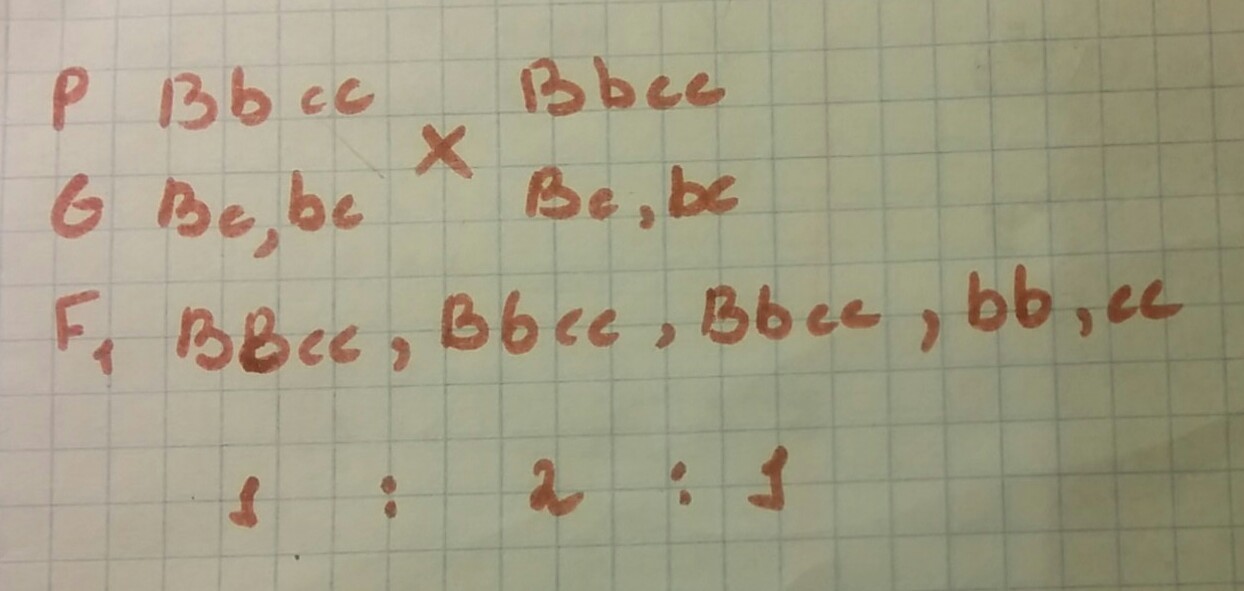 P Bbcc × Bbcc
G Bc, bc Bc, bc
F₁ BBcc, Bbcc, Bbcc, bb, cc
1 : 2 : 1